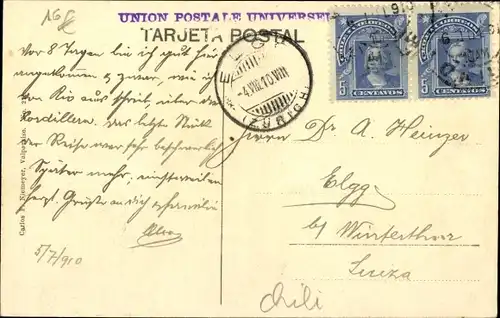 16
UNION POSTALE UNIVERSE
TARJETA POSTAL
ELGG
-4.VIII.10.VIII
(ZÜRICH)
5 CENTAVOS 5
5 CENTAVOS 5
Vor 8 Tagen bin ich gut hier
angekommen & zwar, wie ich
von Rio aus schrieb, über die
Cordilleren. Das letzte Stück
der Reise war sehr beschwerlich
Später mehr, einstweilen
herzl. Grüsse an dich & Familie
5/7/910
Carlos F. Niemeyer, Valparaiso.
Herrn Dr. A. Heinzer
Elgg
b/ Winterthur
Suiza
Chili